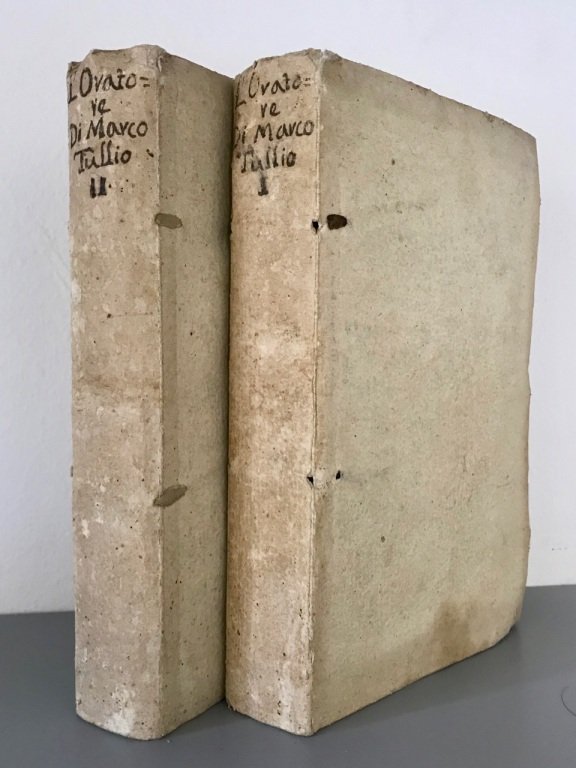 L'Orato=
re
Di Marco
Tullio
II.
L'Orato=
re
Di Marco
Tullio
I